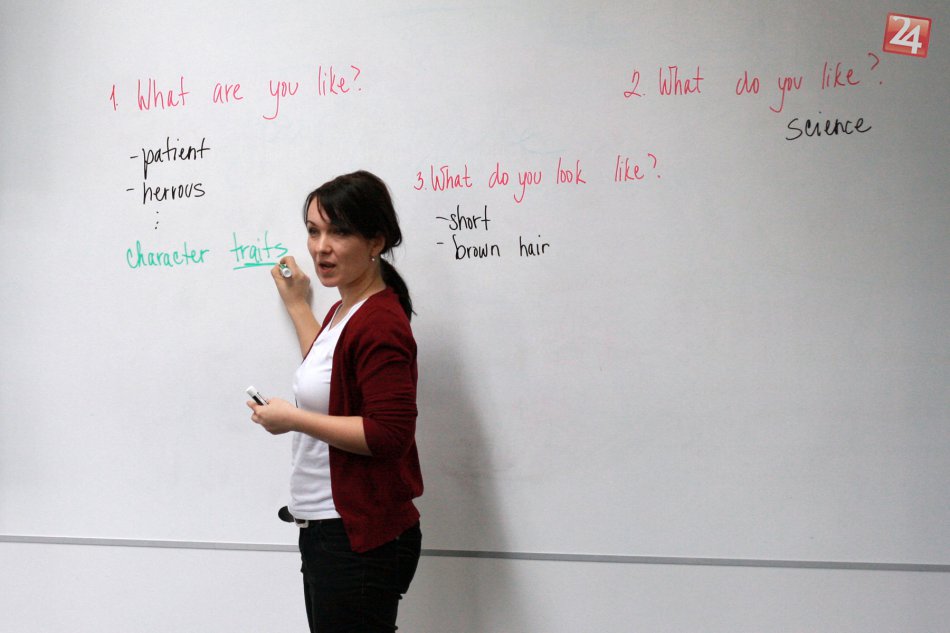 1. What are you like?
- patient
- nervous
⋮
character traits
2. What do you like?
science
3. What do you look like?
- short
- brown hair
24